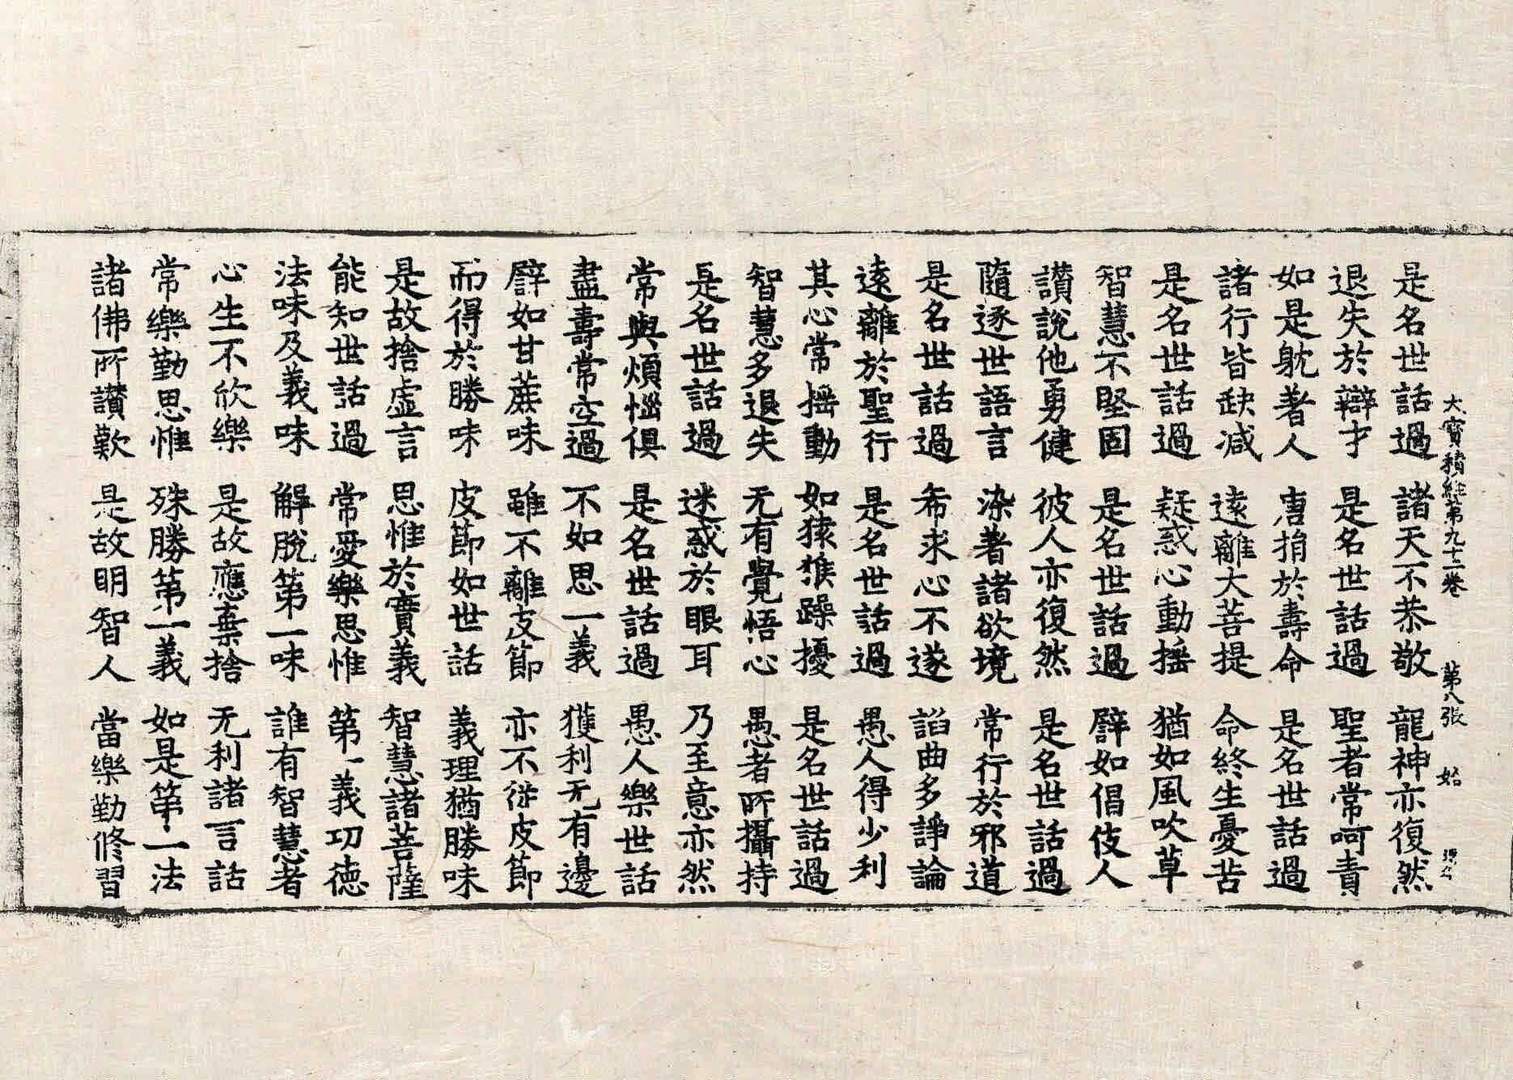 大寶積經第九十二卷　第八張　始
是名世話過　諸天不恭敬　龍神亦復然
退失於辯才　是名世話過　聖者常呵責
如是躭著人　唐捐於壽命　是名世話過
諸行皆缺減　遠離大菩提　命終生憂苦
是名世話過　疑惑心動搖　猶如風吹草
智慧不堅固　是名世話過　譬如倡伎人
讃說他勇健　彼人亦復然　是名世話過
隨逐世語言　染著諸欲境　常行於邪道
是名世話過　希求心不遂　諂曲多諍論
遠離於聖行　是名世話過　愚人得少利
其心常搖動　如猿猴躁擾　是名世話過
智慧多退失　无有覺悟心　愚者所攝持
是名世話過　迷惑於眼耳　乃至意亦然
常與煩惱俱　是名世話過　愚人樂世話
盡壽常空過　不如思一義　獲利无有邊
譬如甘蔗味　雖不離皮節　亦不從皮節
而得於勝味　皮節如世話　義理猶勝味
是故捨虛言　思惟於實義　智慧諸菩薩
能知世話過　常愛樂思惟　第一義功德
法味及義味　解脫第一味　誰有智慧者
心生不欣樂　是故應棄捨　无利諸言話
常樂勤思惟　殊勝第一義　如是第一法
諸佛所讃歎　是故明智人　當樂勤修習